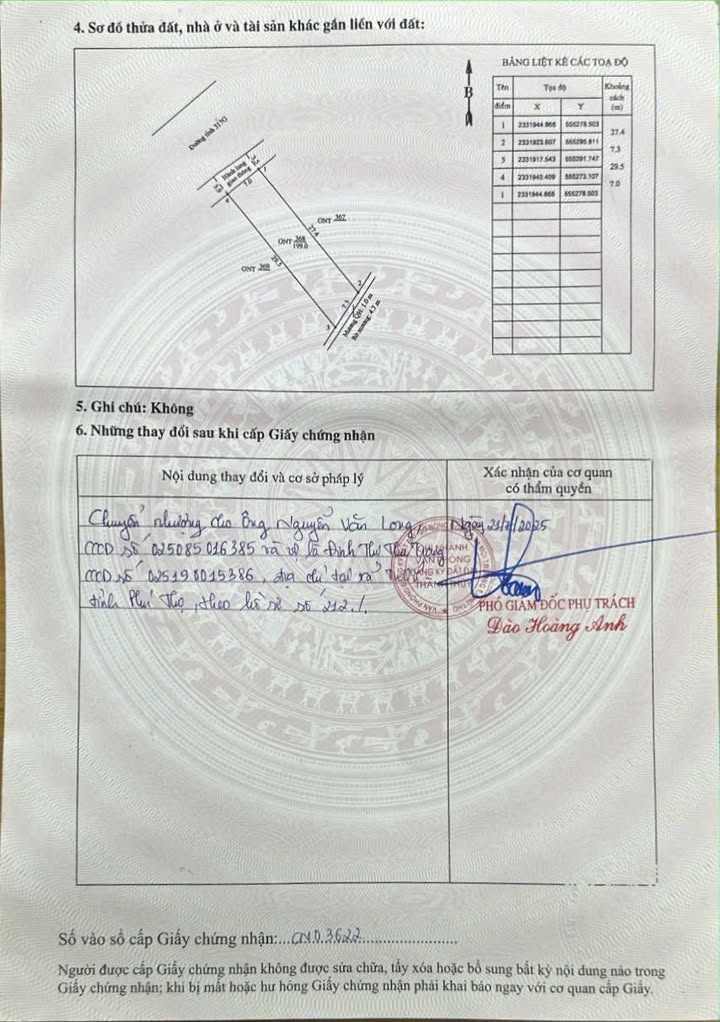 4. Sơ đồ thửa đất, nhà ở và tài sản khác gắn liền với đất:
BẢNG LIỆT KÊ CÁC TOẠ ĐỘ
Tên điểm Toạ độ Khoảng cách (m)
X Y
1 2331944.868 555278.503
27.4
2 2331923.607 555295.811
7.3
3 2331917.543 555291.747
29.5
4 2331940.409 555273.107
7.0
1 2331944.868 555278.503
B
Đường tỉnh 317G
Hành lang giao thông
7.0
1
4
ONT 367
27.4
ONT 368 199.0
29.5
ONT 369
2
7.3
3
Mương QH: 1.0 m
Bờ mương: 4.7 m
5. Ghi chú: Không
6. Những thay đổi sau khi cấp Giấy chứng nhận
Nội dung thay đổi và cơ sở pháp lý
Xác nhận của cơ quan có thẩm quyền
Chuyển nhượng cho Ông Nguyễn Văn Long,
CCCD số 025085016385 và vợ là Đinh Thị
CCCD số 025190015386, địa chỉ tại xã
tỉnh Phú Thọ, theo hồ sơ số 212./.
Ngày 21/2/2025
PHÓ GIÁM ĐỐC PHỤ TRÁCH
Đào Hoàng Anh
Số vào sổ cấp Giấy chứng nhận:...CN.D.3622...
Người được cấp Giấy chứng nhận không được sửa chữa, tẩy xóa hoặc bổ sung bất kỳ nội dung nào trong
Giấy chứng nhận; khi bị mất hoặc hư hỏng Giấy chứng nhận phải khai báo ngay với cơ quan cấp Giấy.